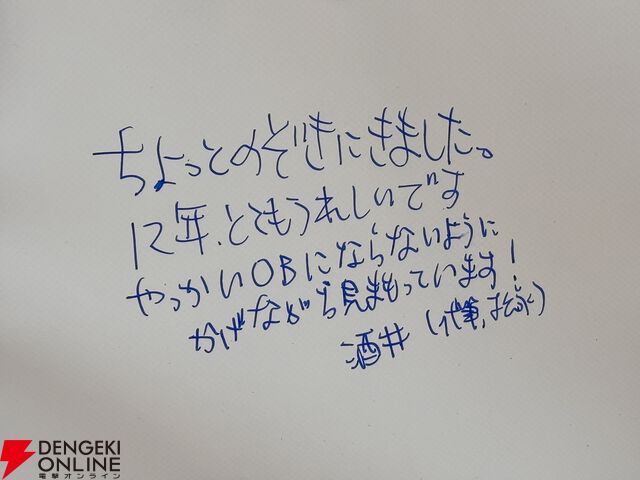 ちょっとのぞきにきました。
12年、とてもうれしいです
やっかいOBにならないように
かげながら見まもっています！
酒井（代筆、
DENGEKI
ONLINE
電撃オンライン